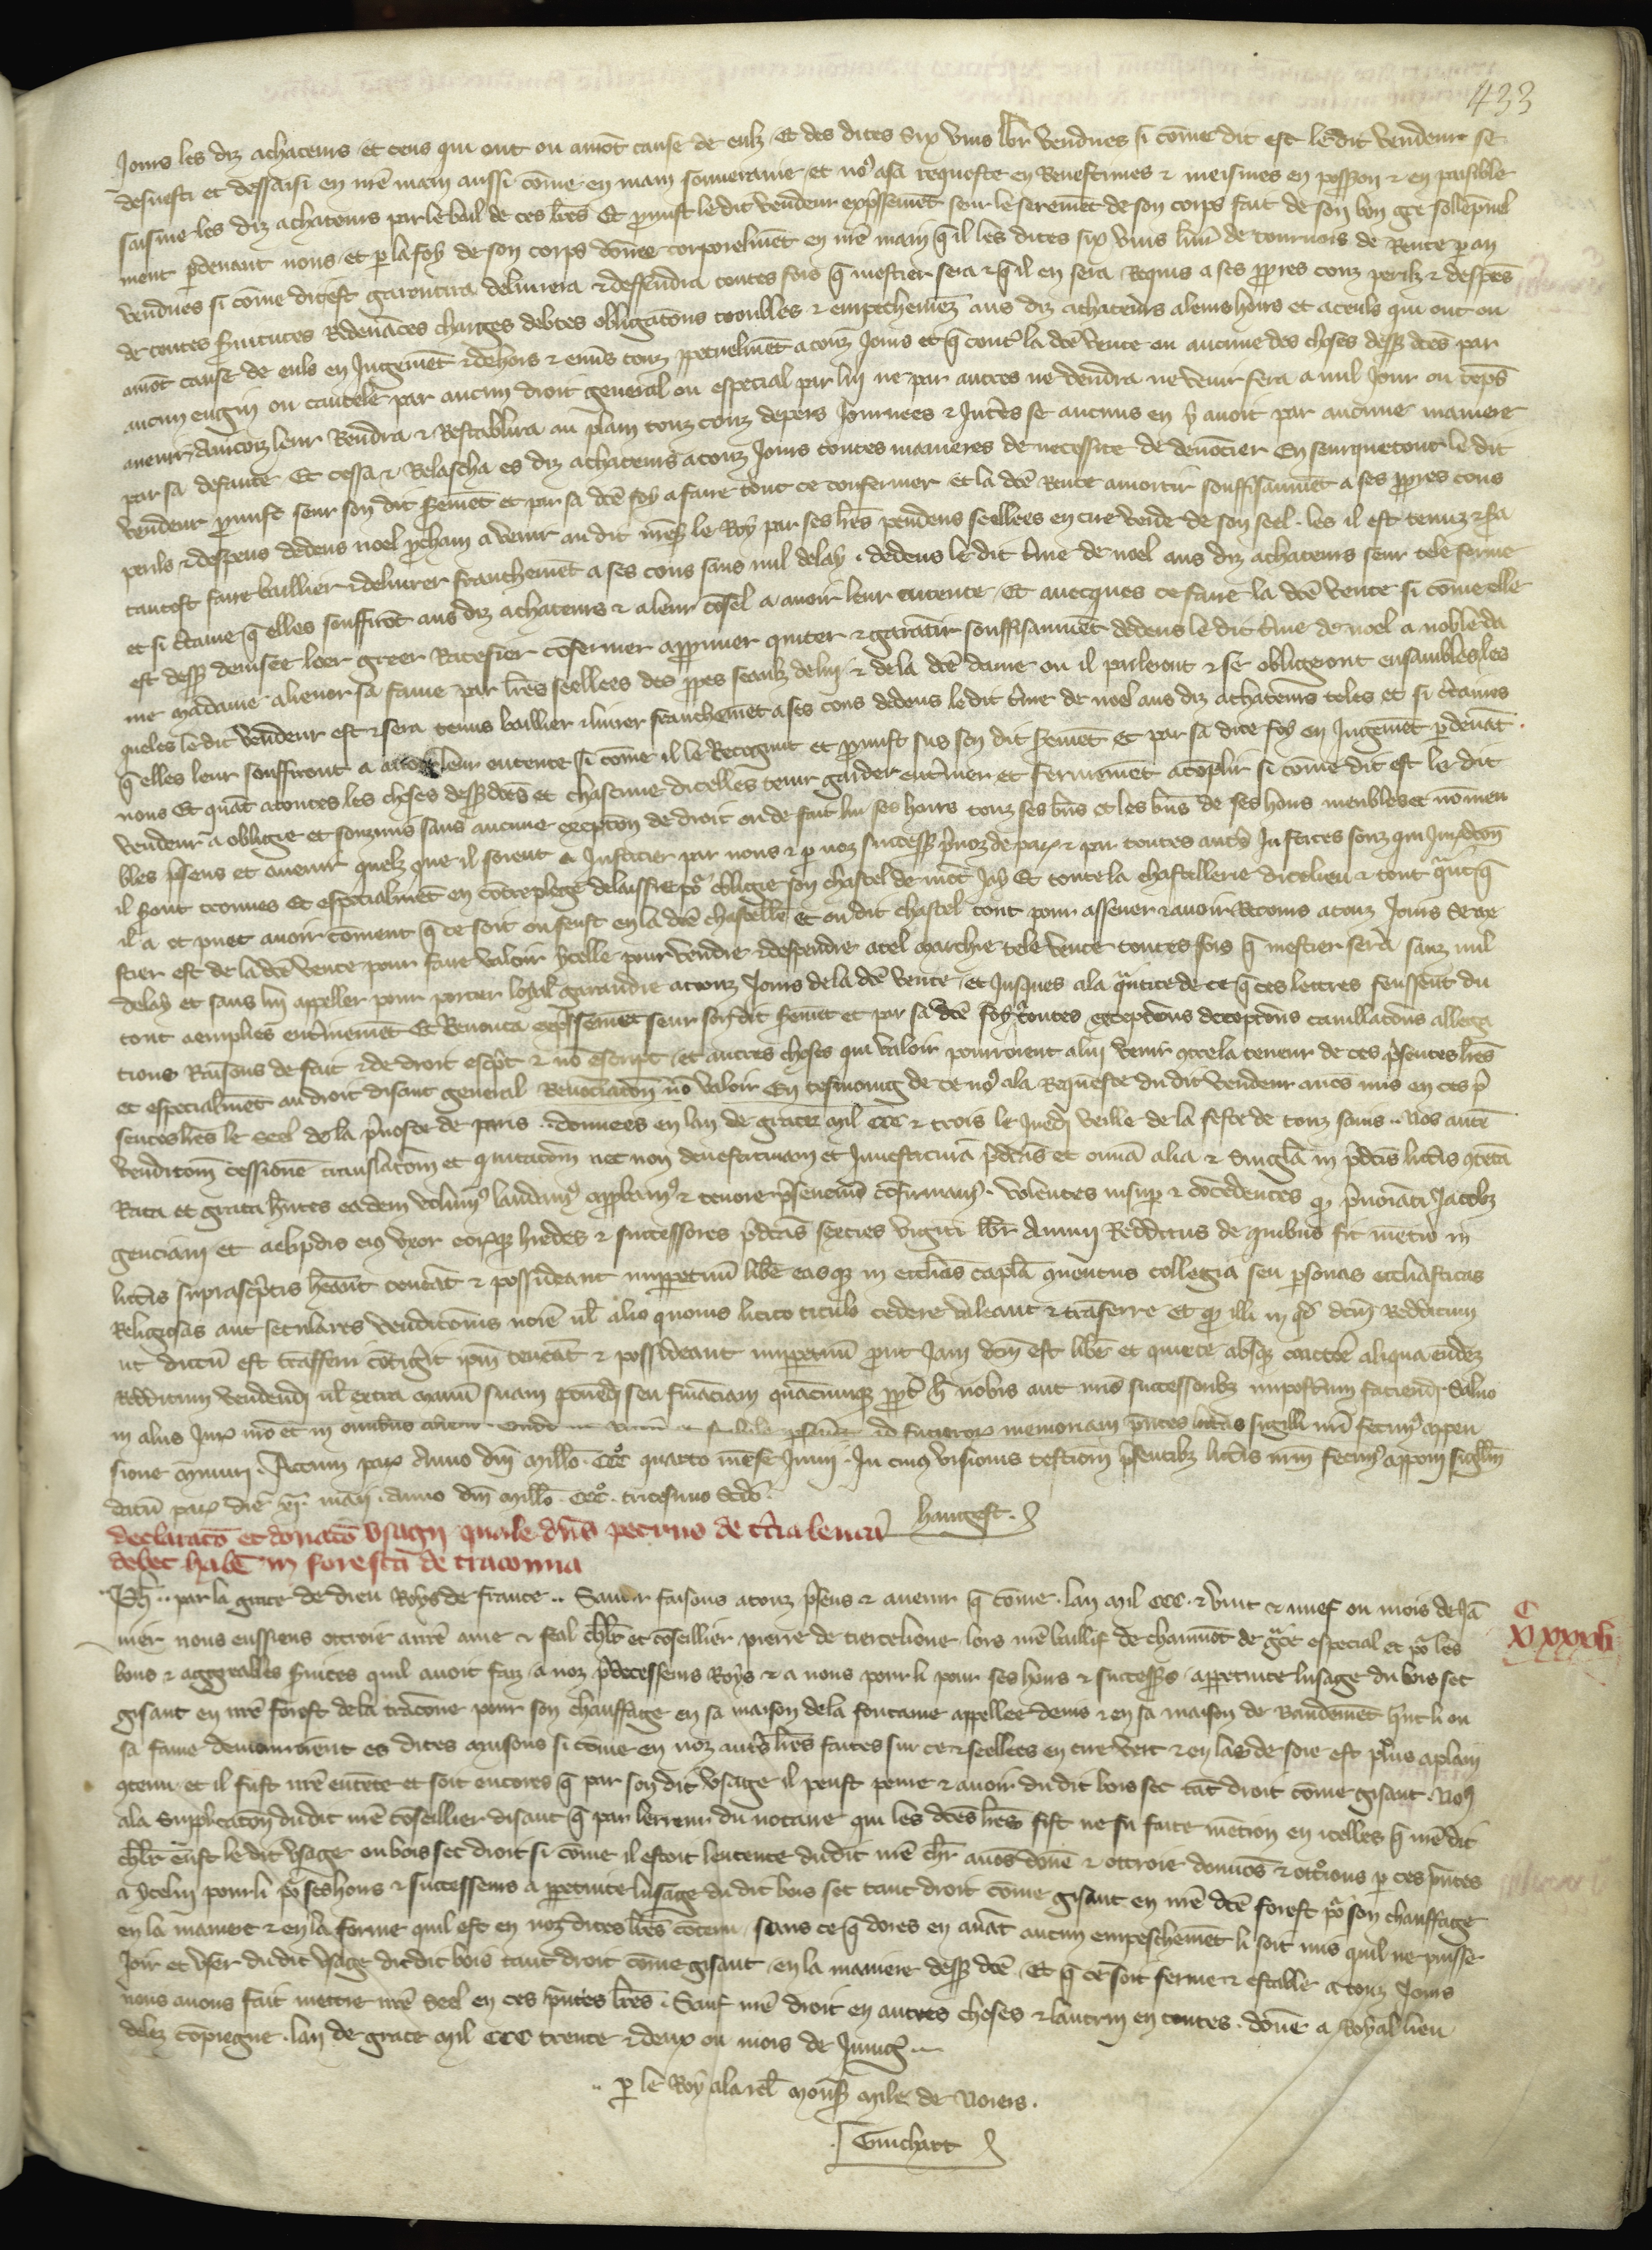 433
Jours les diz achateurs et ceus qui ont ou auront cause de eulz Et des dites six vins lbr vendues si come dit est le dit vendeur se
desvesti et dessaisi en nre main aussi come en main souveraine et nos a sa requeste en Revestimes & meismes en possession & en paisible
saisine les diz achateurs par le bail de ces lres Et promist le dit vendeur expressement seur le serement de son corps fait de son bon gre sollepnel
ment pdevant nous et p la foy de son corps donnee corporelment en nre main q il les dites six vins livr de tournois de Rente p an
vendues si come dit est garentira delivrera & deffendra toutes fois q mestier sera & q il en sera Requis a ses ppres couz perilz & despens
de toutes servitutes Redevances charges debtes obligations troubles & empechemenz aus diz achateurs a leurs hoirs et a ceuls qui ont ou
auront cause de euls en Jugement & dehors & envers touz ppetuelment a touz Jours et q contre la dce vente ou aucune des choses dessus dces par
aucun engin ou cautele par aucun droit general ou especial par lui ne par autres ne vendra ne venir fera a nul Jour ou temps
avenir Aincois leur Rendra & Restablira au plain touz couz depers Journees & Interes se aucuns en y avoit par aucune maniere
par sa defaute Et cessa & Relascha es diz achateurs a touz Jours toutes manieres de necessite de denoncier En seurquetout le dit
vendeur promist seur son dit serement et par sa dce foy a faire tout ce confermer et la dce Rente amortir souffisaument a ses ppres cous
perils & despens dedens noel pcham a venir au dit mons le Roy par ses lres pendens seellees en cire verde de son seel les il est tenuz & sera
tantost faire baillier & delivrer franchement a ses cous sans nul delay dedens le dit tme de noel aus diz achateurs seur tele forme
et si certaine q elles souffiront aus diz achateurs & a leur consel a avoir leur entente Et avecques ce faire la dce vente si come elle
est dessus devisee loer greer Ratefier confermer approuver quiter & garantir souffisaument dedens le dit tme de noel a noble da
me madame alienor sa fame par lres seellees des ppres seaulz de lui & de la dce dame ou il parleront & se obligeront ensambles les
queles le dit vendeur est & sera tenus baillier & livrer franchement a ses cous dedens le dit tme de noel aus diz achateurs teles et si certaines
q elles leur souffiront a avoir leur entente si come il le Recognut et promist sus son dit serement et par sa dite foy en Jugement pdevant
nous Et quant a toutes les choses dessus dces et chascune dicelles tenir garder enteriner et fermement acomplir si come dit est le dit
vendeur a obligie et souzmis sans aucune exception de droit ou de fait lui ses hoirs touz ses bns et les bns de ses hoirs meubles et nommeu
bles presens et avenir quelz que il soient a Justicier par nous & p noz successeurs prevoz de paris & par toutes autres Justices souz qui Juridon
il seront trouves Et especialment en contreplege delaissie & obligie son chastel de mont Jay Et toute la chastellerie dicelieu & tout quanq
il a et puet avoir coment q ce soit ou feust en la dce chastellerie et ou dit chastel tout pour assener & avoir Recours a touz Jours se me
stier est de la dce vente pour faire valoir ycelle pour vendre & despendre a tel marchie tele vente toutes fois q mestier sera sanz nul
delay et sans lui appeller pour porter loyal garandie a touz Jours de la dce vente et Jusques a la quantite de ce q ces lettres feussent du
tout aemplies enterinement Et Renonca expressement seur son dit serement et par sa dce foy a toutes exceptions deceptions cavillacions allega
tions Raisons de fait & de droit escrit & non escript et autres choses qui valoir pourroient a lui venir contre la teneur de ces presentes lres
et especialment au droit disant general Renonciation non valoir En tesmoing de ce nos a la Requeste du dit vendeur avons mis en ces p
sentes lres le seel de la prevoste de paris donnees en lan de grace mil ccc & trois le Juedi veille de la feste de touz sains Nos autem
venditionem cessionem translationem et quitationem nec non devestituram et Investituram pdictas et omnia alia & singula in pdictis litteris contenta
Rata et grata habentes eadem volumus laudamus approbamus & tenore presentium confirmamus volentes insuper & concedentes q prenominati Jacobus
genciani et aelipdis eius uxor eorumque heredes & successores pdictas sexties viginti lbr annui Redditus de quibus fit mentio in
litteris suprascriptis habeant teneant & possideant imperpetuum libere easque in ecclesias capla conventus collegia seu personas ecclesiasticas
Religiosas aut seculares venditionis nomine vel alio quovis licito titulo cedere valeant & transferre et q illi in quos dictum Redditum
ut dictum est transferri contigerit ipsum teneant & possideant imperpetuum prout Jam dictum est libere et quiete absque coactione aliqua eundem
Redditum vendendi vel extra manum suam ponendi seu financiam quamcumque ppter hoc nobis aut nris successoribus imposterum faciendi Salvo
in aliis Jure nro et in omnibus alieno memoriam presentes litteras sigilli nri fecimus appen
sione muniri Actum paris anno dni millo ccc quarto mense Junii In cuius visionis testimonium presentibus litteris nrum fecimus apponi sigillum
datum paris die maii anno dni millo ccc tricesimo scdo
hangest
declaratio et donatio usagii quale dns petrus de terceleue
debet habere in foresta de traconna
Ph par la grace de dieu Roys de france Savoir faisons a touz presens & avenir q come lan mil ccc & vint & nuef ou mois de Jan
vier nous eussiens ottroie a nre ame & feal chlr et conseillier pierre de tiercelieue lors nre baillif de chaumont de grace especial et pour les
bons & aggreables services quil avoit faiz a noz predecesseurs Roys & a nous pour li pour ses hoirs & successeurs a perpetuite lusage du bois sec
gisant en nre forest de la traconne pour son chauffage en sa maison de la fontaine appellee denis & en sa maison de Vaudement quant li ou
sa fame demourroient es dites maisons si come en noz autres lres faites sur ce & seellees en cire vert & en las de soie est plus a plain
contenu et il fust nre entente et soit encores q par son dit usage il peust penre & avoir du dit bois sec tant droit come gisant Nos
a la supplication du dit nre conseillier disant q par lerreur du notaire qui les dces lres fist ne fu faite mention en icelles q nre dit
chlr eust le dit usage ou bois sec droit si come il estoit lentente du dit nre chlr avons donne & ottroie donnons & ottroions p ces presentes
a ycelui pour li pour ses hoirs & successeurs a perpetuite lusage du dit bois sec tant droit come gisant en nre dce forest pour son chauffage
en la maniere & en la forme quil est en noz dites lres contenu sans ce q dores en avant aucun empeschement li soit mis quil ne puisse
Joir et user dudit usage dudit bois tant droit come gisant en la maniere dessus dce Et q ce soit ferme & estable a touz Jours
nous avons fait mettre nre seel en ces presentes lres Sauf nre droit en autres choses & lautrui en toutes donne a Royal lieu
delez compiegne lan de grace mil ccc trente & deux ou mois de Juing
p le Roy a la rel mons mile de Noiers
Guichart